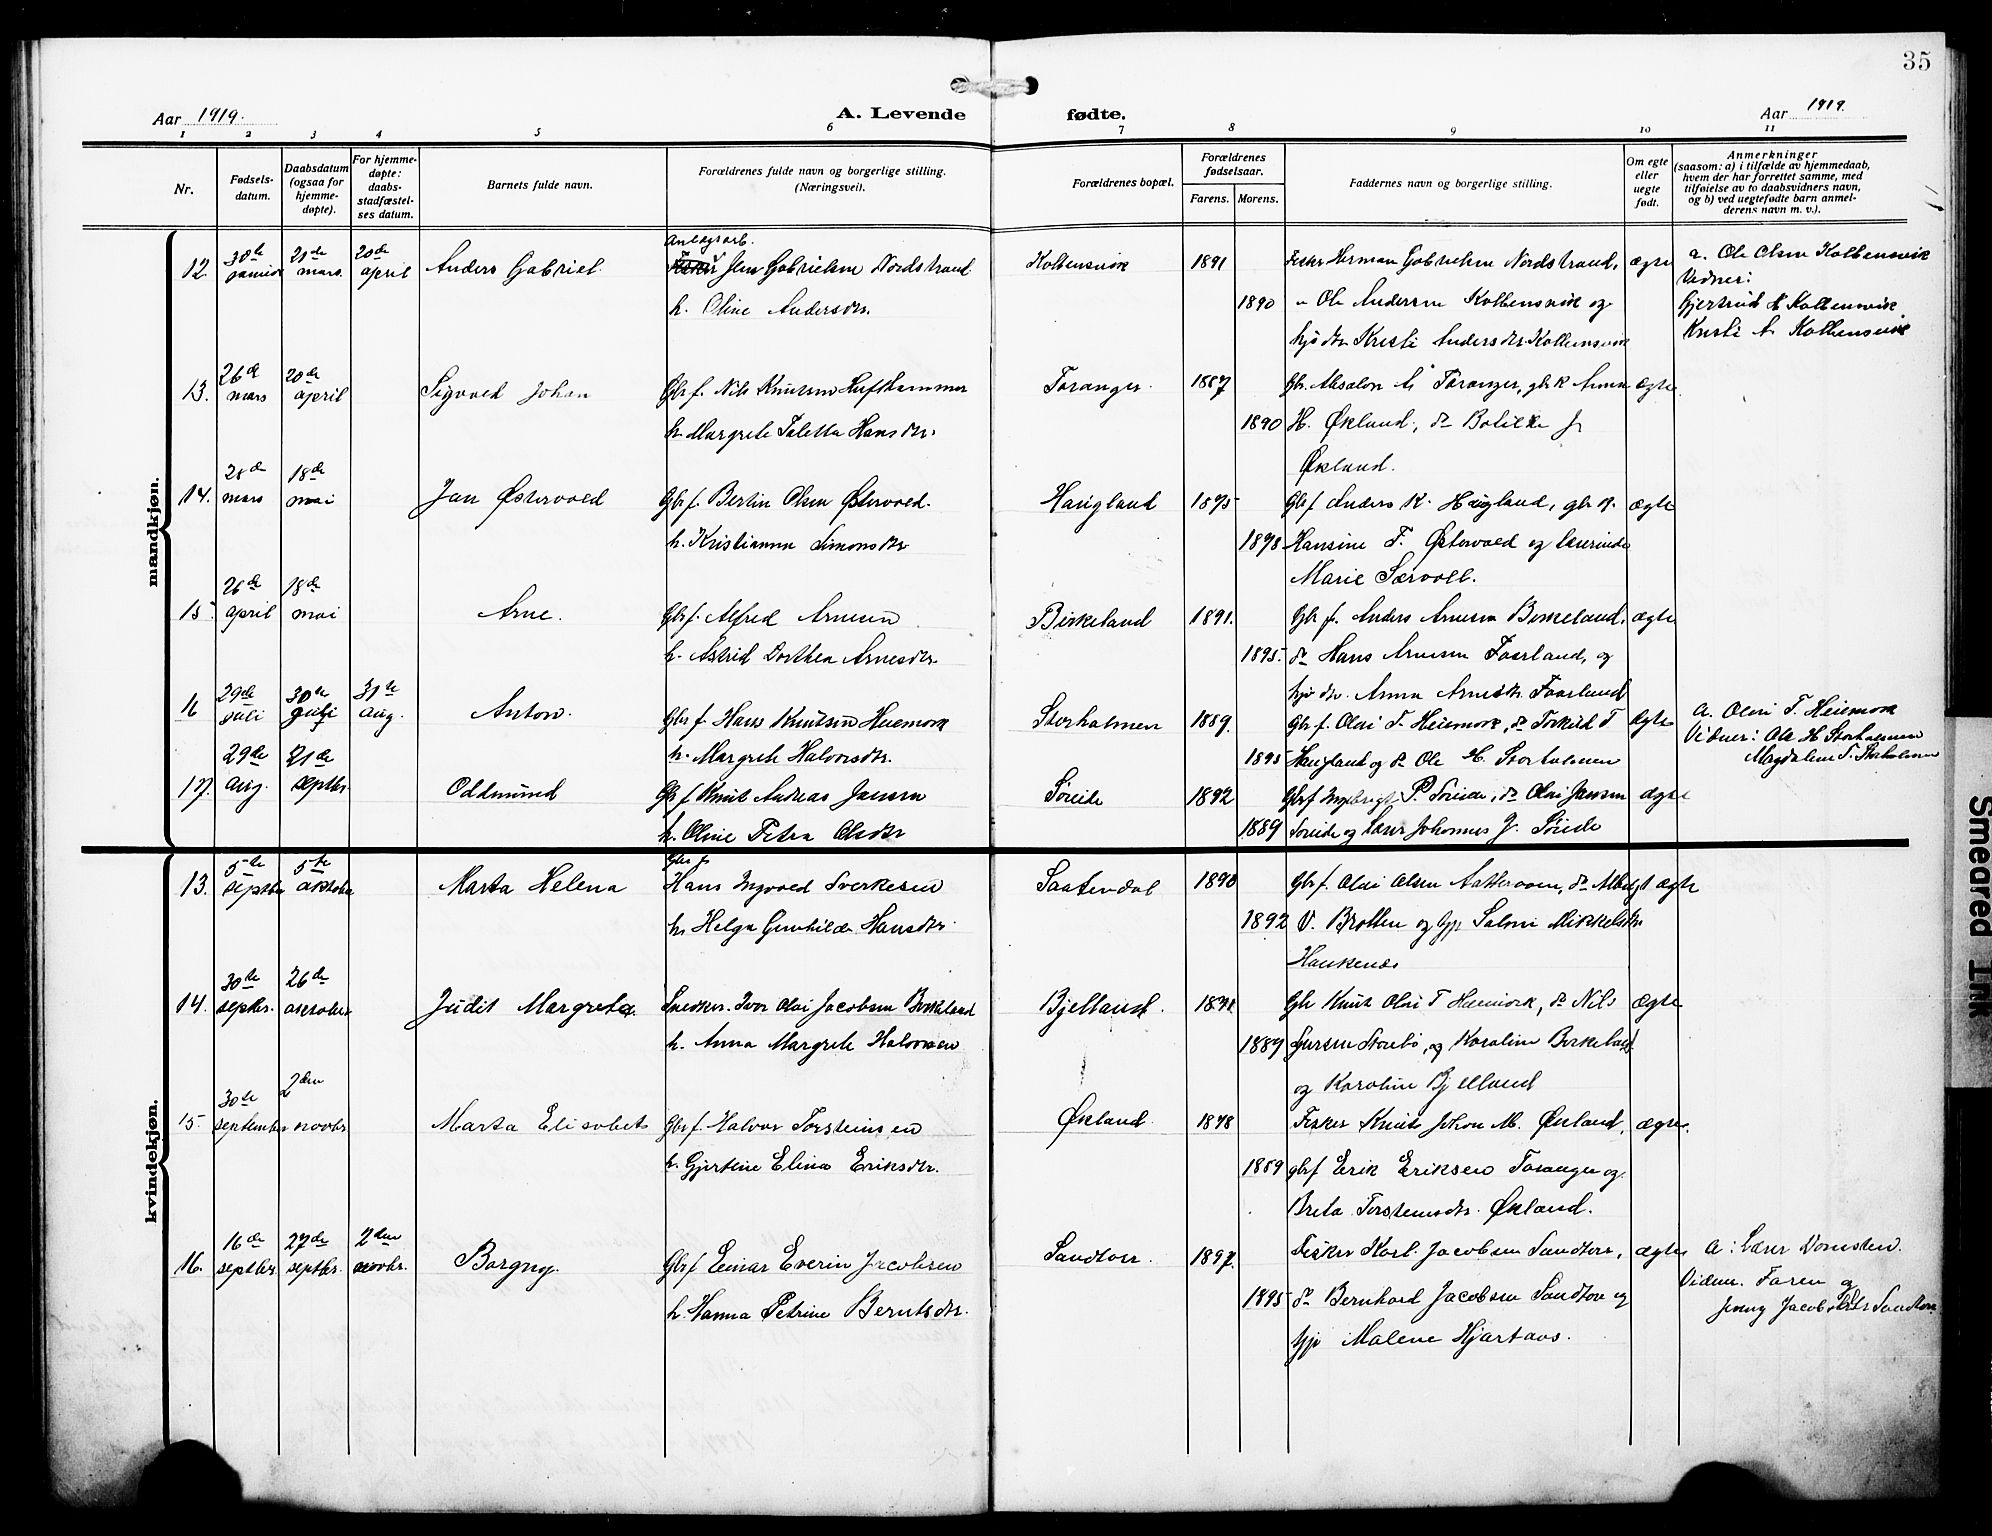 35
Aar 1919.
A. Levende
fødte.
Aar 1919.
1 2 3 4 5 6 7 8 9 10 11
Nr.
Fødsels-
datum.
Daabsdatum
(ogsaa for
hjemme-
døpte).
For hjemme-
døpte:
daabs-
stadfæstel-
ses datum.
Barnets fulde navn.
Forældrenes fulde navn og borgerlige stilling.
(Næringsvei).
Forældrenes bopæl.
Forældrenes
fødselsaar.
Farens. Morens.
Faddernes navn og borgerlige stilling.
Om egte
eller
uegte
født.
Anmerkninger
(saasom: a) i tilfælde av hjemmedaab,
hvem der har forrettet samme, med
tilføielse av to daabsvidners navn,
og b) ved uegtefødte barn anmel-
derens navn m. v.).
mandkjøn.
12 30te 21de mars 20de april Anders Gabriel. Anlegsarb. Jens Gabrielsen Nordstrand Kolbensvik 1891 Fisker Herman Gabrielsen Nordstrand, ægte a. Ole Olsen Kolbensvik
h. Oline Andersdtr. 1890 " Ole Andersen Kolbensvik og Vidner:
Gjertrud H Kolbensvik
Kristi Andersdtr Kolbensvik Kristi A. Kolbensvik
13. 26de mars 20de april Sigvald Johan Gbr f. Nils Knutsen Hufthammer Toranger. 1887 Gbr. Absalon Toranger, gbr k Anna ægte
h. Margrete Taletta Hansdtr. 1890 H. Økland, do Botilde J
Økland.
14. 28de mars 18de mai Jan Østervold Gbr f. Bertin Olsen Østervold. Haugland 1895 Gbr f Anders K. Haugland, gbr k. ægte
h. Kristianna Simonsdtr 1898 Hansine F. Østervold og lærerinde
Marie Særvoll.
15. 26de april 18de mai Arne. Gbr f. Alfred Arnesen Birkeland 1891. Gbr f. Anders Arnesen Birkeland, ægte
h. Astrid Dorthea Arnesdtr. 1895. do Hans Arnesen Faarland, og
Anna Arnesdtr. Faarland
16 29de juli 30te juli 31te aug. Anton. Gbr f. Hans Knutsen Heiemork Storholmen 1889. Gbr f. Olai T. Heiemork, do Torkild T ægte a. Olai T. Heiemork
h. Margrete Halvorsdtr. 1895 Haugland og do Ole H. Storholmen Vidner: Ole H Storholmen
Magdalene T. Storholmen
17. 29de aug. 21de septbr. Oddmund Gbr f Knut Andreas Jansen Søreide 1892 Gbr f Ingebrigt P. Søreide, do Olai Jansen ægte
h. Oline Petra Olsdtr 1889 Søreide og lærer Johannes J. Søreide
kvindekjøn.
13. 5te septbr 5te oktober Marta Helena Gbr f.
Hans Ingvald Sverkesen Saatendal 1890 Gbr f. Olai Olsen ægte
h. Helga Gunhilde Hansdtr. 1892 V. Bratten og Salomi Mikkelsdtr
Haukenes
14. 30te septbr. 26de oktober Judit Margreta. Snedker. Ivar Olai Jacobsen Birkeland Bjelland. Gbr Knut Olai T Heiemork, do Nils ægte
h. Anna Margrete Halvorsen 1889 Storebø, og Karoline Birkeland
og Karoline Bjelland
15. 30te september 2den novbr. Marta Elisabet Gbr f. Halvor Torsteinsen Økland. 1878 Fisker Knut Johan M. Økland, ægte.
h. Gjertine Elina Eriksdtr. gbr f Erik Eriksen Toranger og
Breta Torsteinsdtr. Økland.
16. 16de septbr. 27de septbr. 2den novbr. Borgny. Gbr f Einar Everin Jacobsen Sandtorv. 1897. Fisker Karl Jacobsen Sandtorv, ægte a: Lærer Vomsten.
h. Hanna Petrine Berntsdtr. 1895 do Bernhard Jacobsen Sandtorv og Vidner. Faren og
Malene Hjartaas. Jenny Jacobsdtr Sandtorv.
Smeared Ink